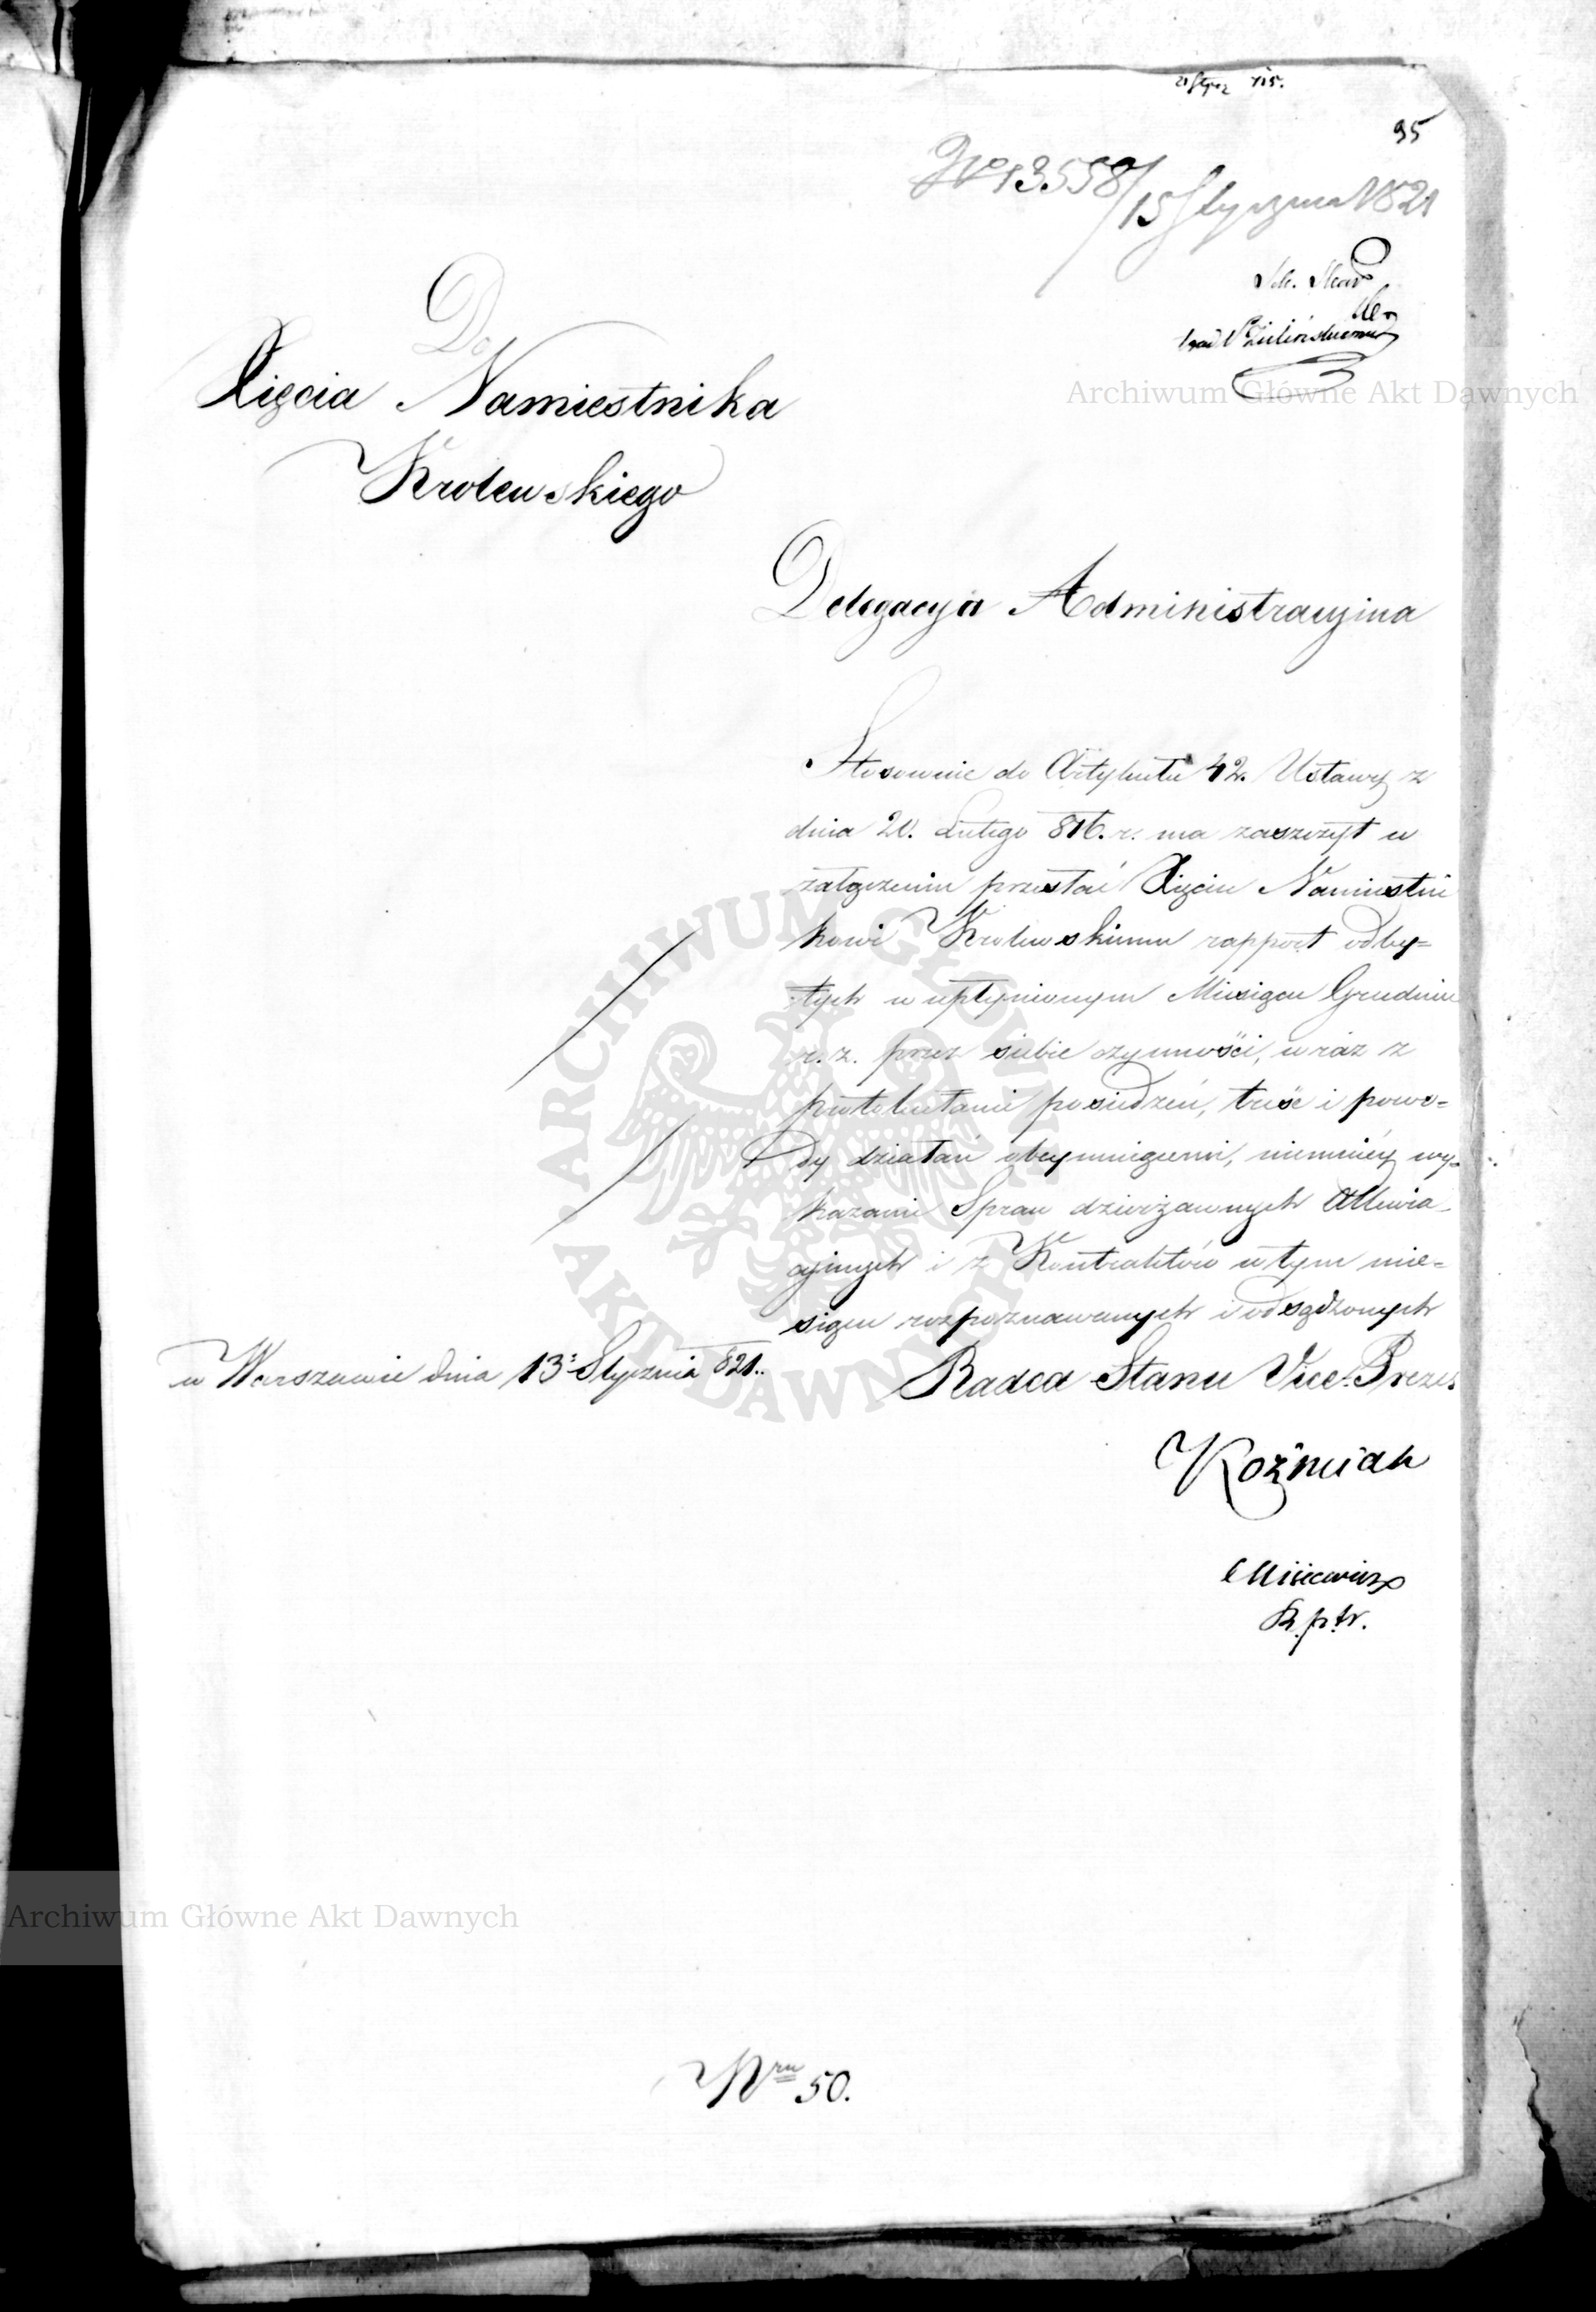 95
No 13558/15 Stycznia 1821
Do
Xięcia Namiestnika
Krolewskiego
Delegacyia Administracyina
Stosownie do Artykułu 42. Ustawy z
dnia 20. Lutego 816. r. ma zaszczyt w
załączeniu przesłać Xięciu Namiestni
kowi Krolewskiemu rapport odby=
tych w upłynionym Miesiącu Grudniu
r. z. przez siebie czynności, wraz z
protokułami posiedzeń, treść i powo=
dy działań obeymuiącemi, niemniéy wy=
kazami Spraw dzierżawnych Allewia
cyinych i z Kontraktów w tym mie=
siącu rozpoznawanych i odsądzonych
w Warszawie dnia 13 Stycznia 821.
Radca Stanu Vice-Prezes
Koźmian
Misiewicz
Nru 50.
Archiwum Główne Akt Dawnych
Archiwum Główne Akt Dawnych
ARCHIWUM GŁÓWNE AKT DAWNYCH